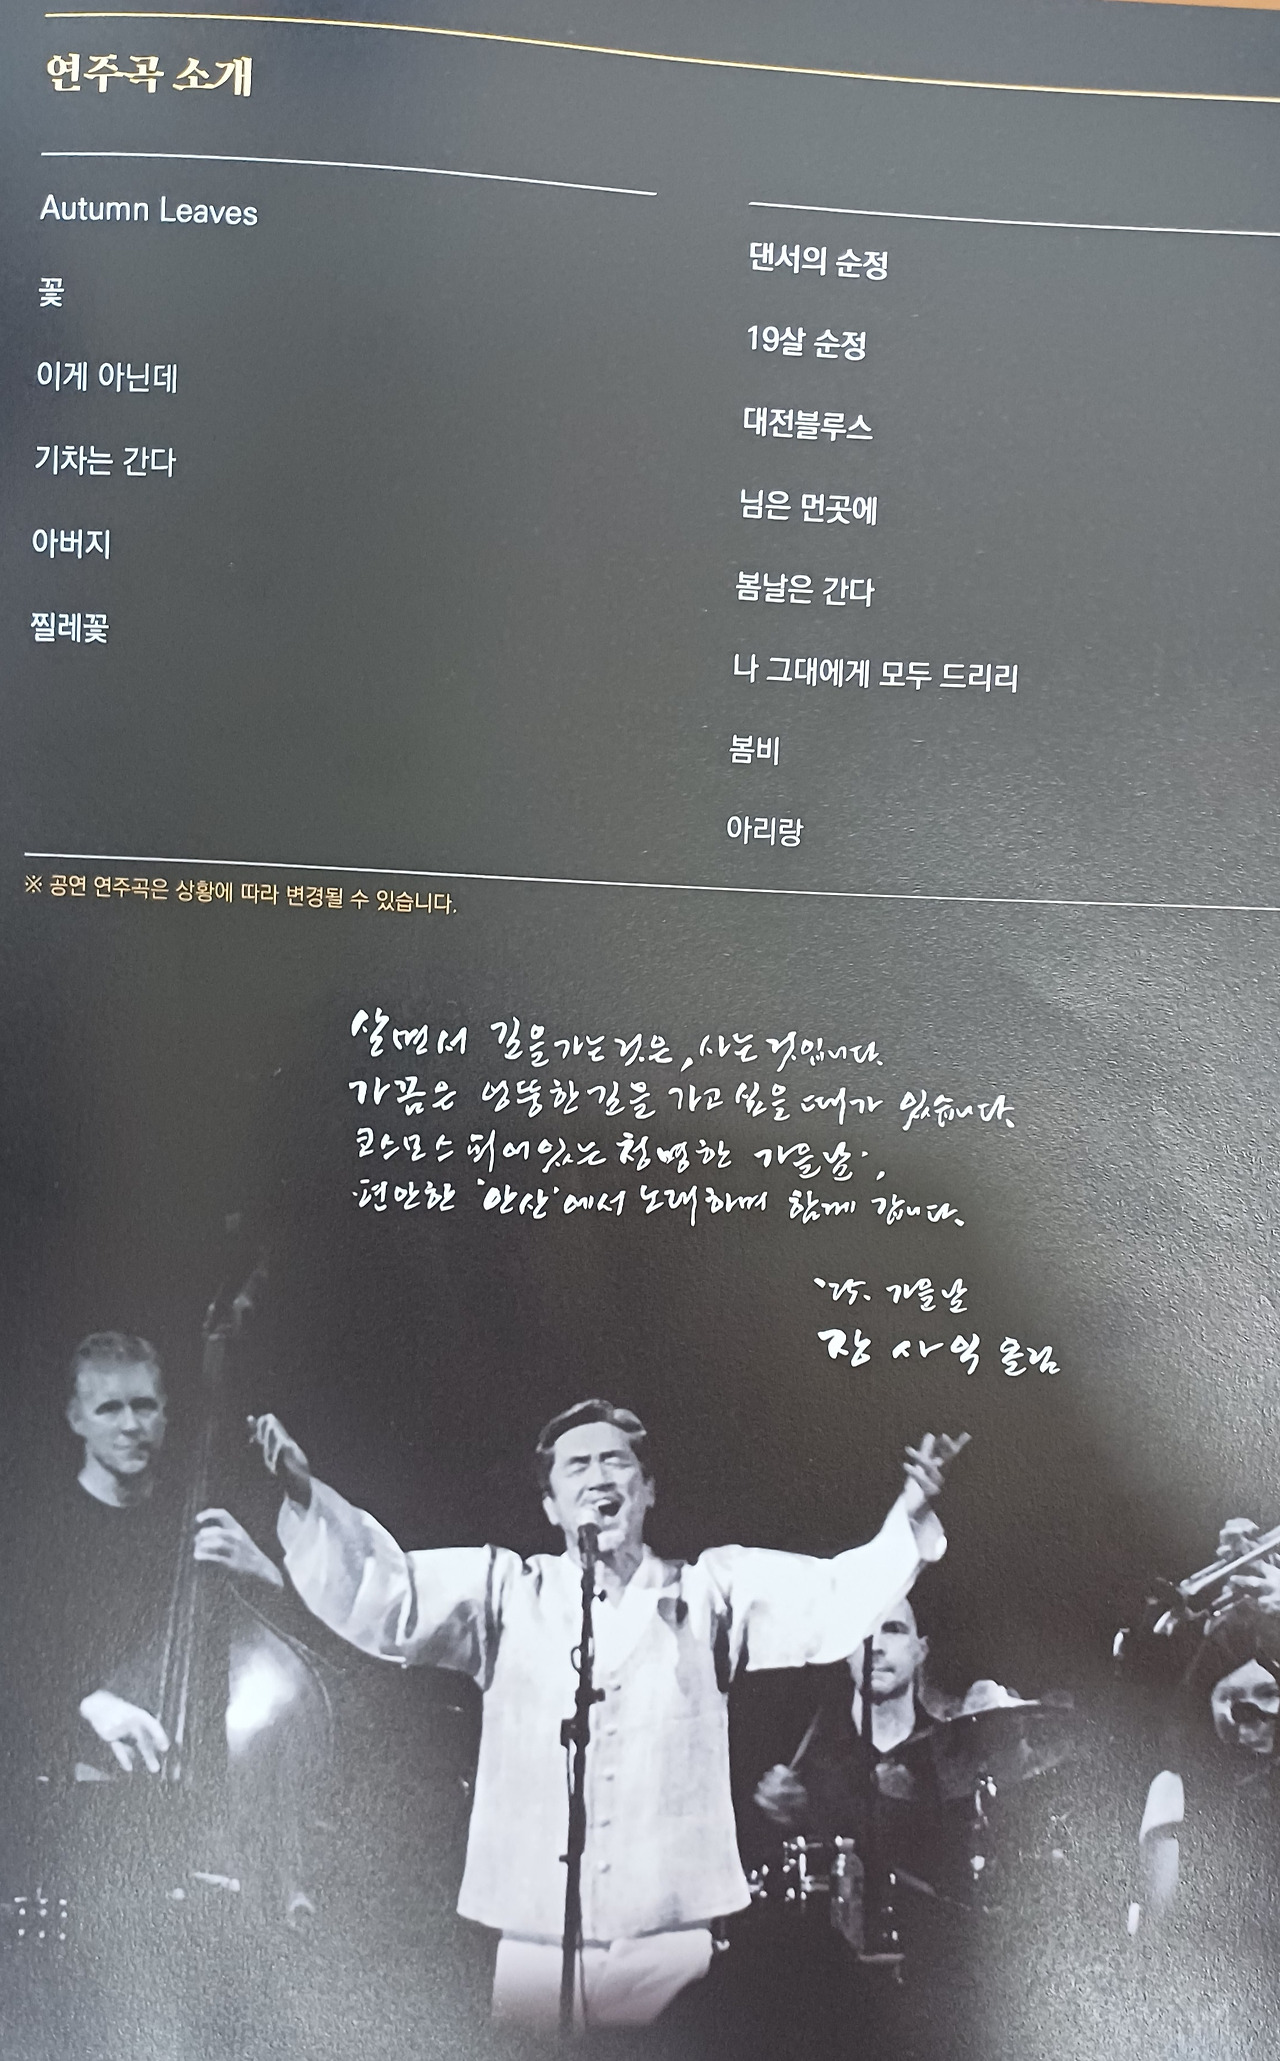 연주곡 소개
Autumn Leaves
꽃
이게 아닌데
기차는 간다
아버지
찔레꽃
댄서의 순정
19살 순정
대전블루스
님은 먼곳에
봄날은 간다
나 그대에게 모두 드리리
봄비
아리랑
※ 공연 연주곡은 상황에 따라 변경될 수 있습니다.
살면서 길을 가는 것은, 사는 것입니다.
가끔은 엉뚱한 길을 가고 싶을 때가 있습니다.
코스모스 피어있는 청명한 가을날,
편안한 '안산'에서 노래하며 함께 갑니다.
'25. 가을날
장사익 올림